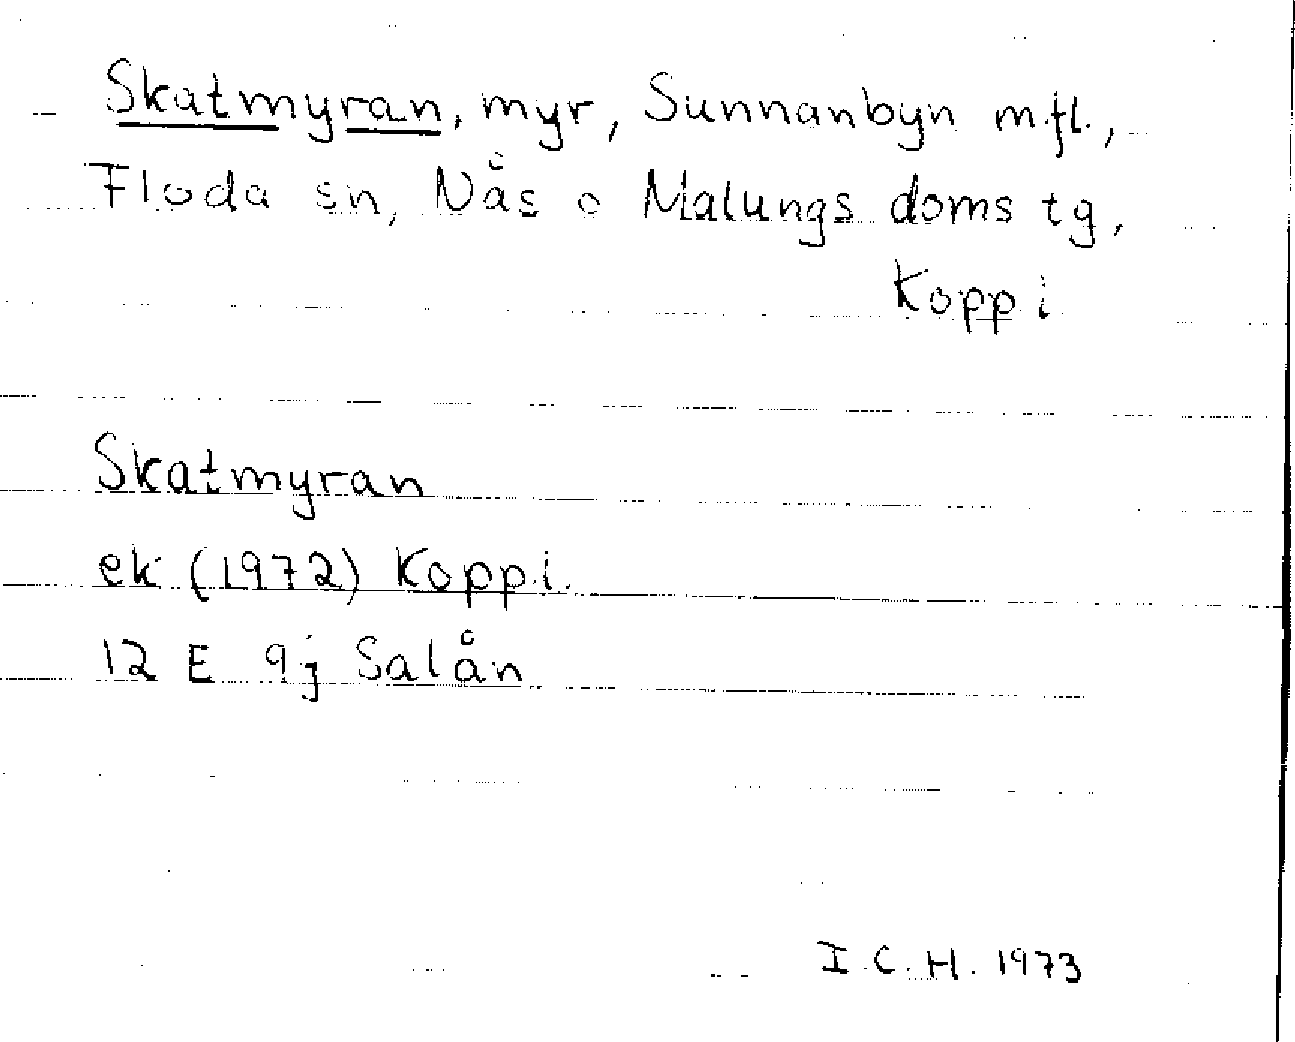 Skatmyran, myr, Sunnanbyn m.fl.,
Floda sn, Nås o Malungs doms tg,
Kopp i
Skatmyran
ek (1972) Kopp.i.
12 E 9j Salån
I.C.H. 1973